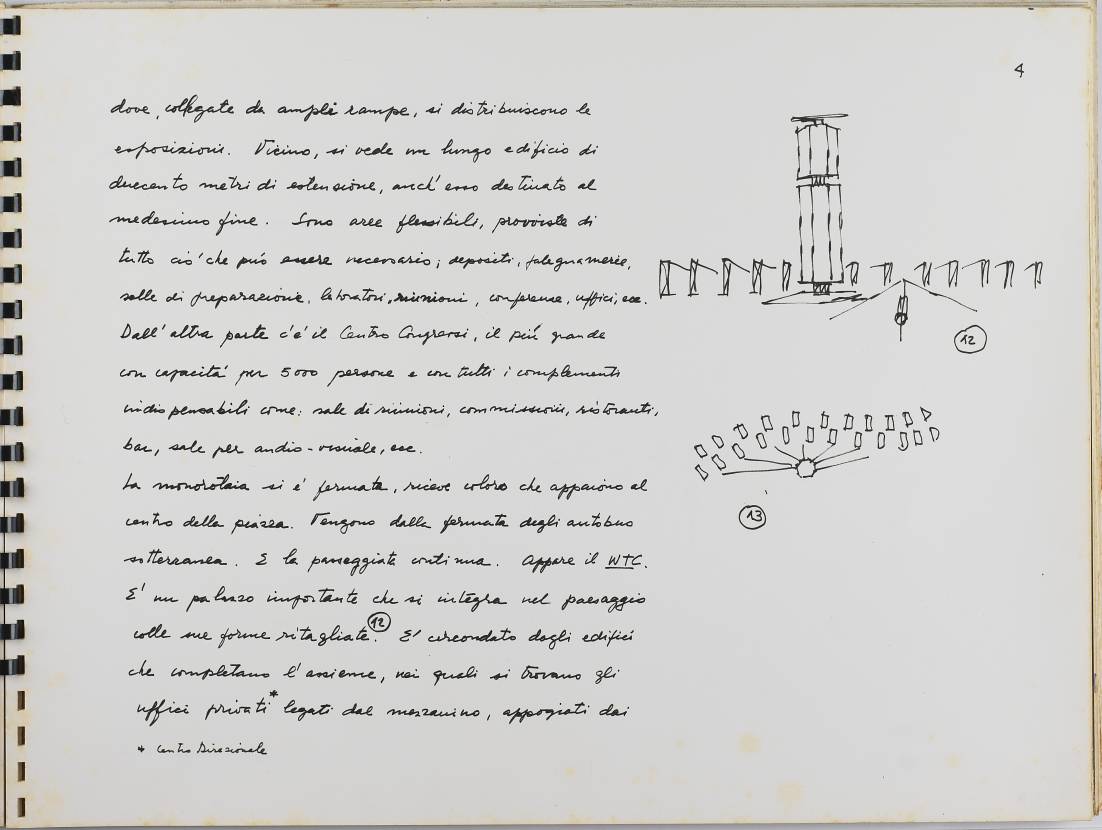 4
dove, collegate da ampli rampe, si distribuiscono le
esposizioni. Vicino, si vede un lungo edificio di
duecento metri di estensione, anch'esso destinato al
medesimo fine. Sono aree flessibili, provviste di
tutto ciò che può essere necessario; depositi, falegnamerie,
salle di preparazione, laboratori, riunioni, conferenze, uffici, ecc.
Dall'altra parte c'é il Centro Congressi, il più grande
con capacità per 5000 persone e con tutti i complementi
indispensabili come: sale di riunioni, commissioni, ristoranti,
bar, sale per audio-visuale, ecc.
La monorotaia si é fermata, riceve coloro che appaiono al
centro della piazza. Vengono dalla fermata degli autobus
sotterranea. E la passeggiata continua. Appare il WTC.
E' un palazzo importante che si integra nel paesaggio
colle sue forme ritagliate. 12 E' circondato dagli edifici
che completano l'assieme, nei quali si trovano gli
uffici privati* legati dal mezzanino, appogiati dai
* Centro Direzionale
12
13